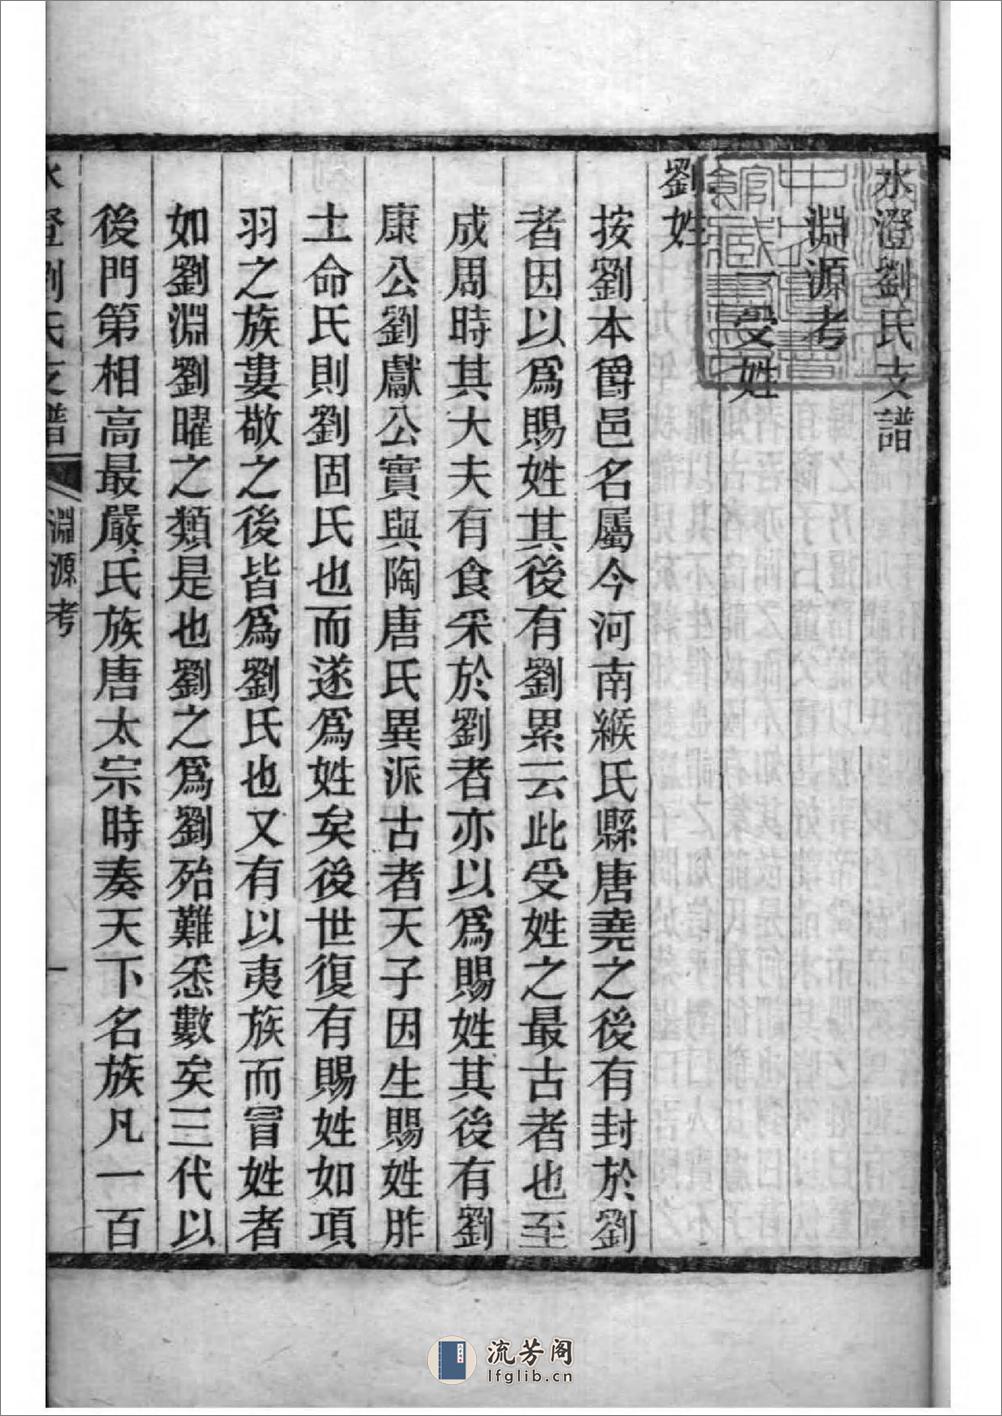 水澄劉氏支譜
淵源考
受姓
劉姓
按劉本爵邑名屬今河南緱氏縣唐堯之後有封於劉
者因以爲賜姓其後有劉累云此受姓之最古者也至
成周時其大夫有食釆於劉者亦以爲賜姓其後有劉
康公劉獻公實與陶唐氏異派古者天子因生賜姓胙
土命氏則劉固氏也而遂爲姓矣後世復有賜姓如項
羽之族婁敬之後皆爲劉氏也又有以夷族而冒姓者
如劉淵劉曜之類是也劉之爲劉殆難悉數矣三代以
後門第相高最嚴氏族唐太宗時奏天下名族凡一百
水澄劉氏支譜
淵源考
一
流芳阁
lfglib.cn